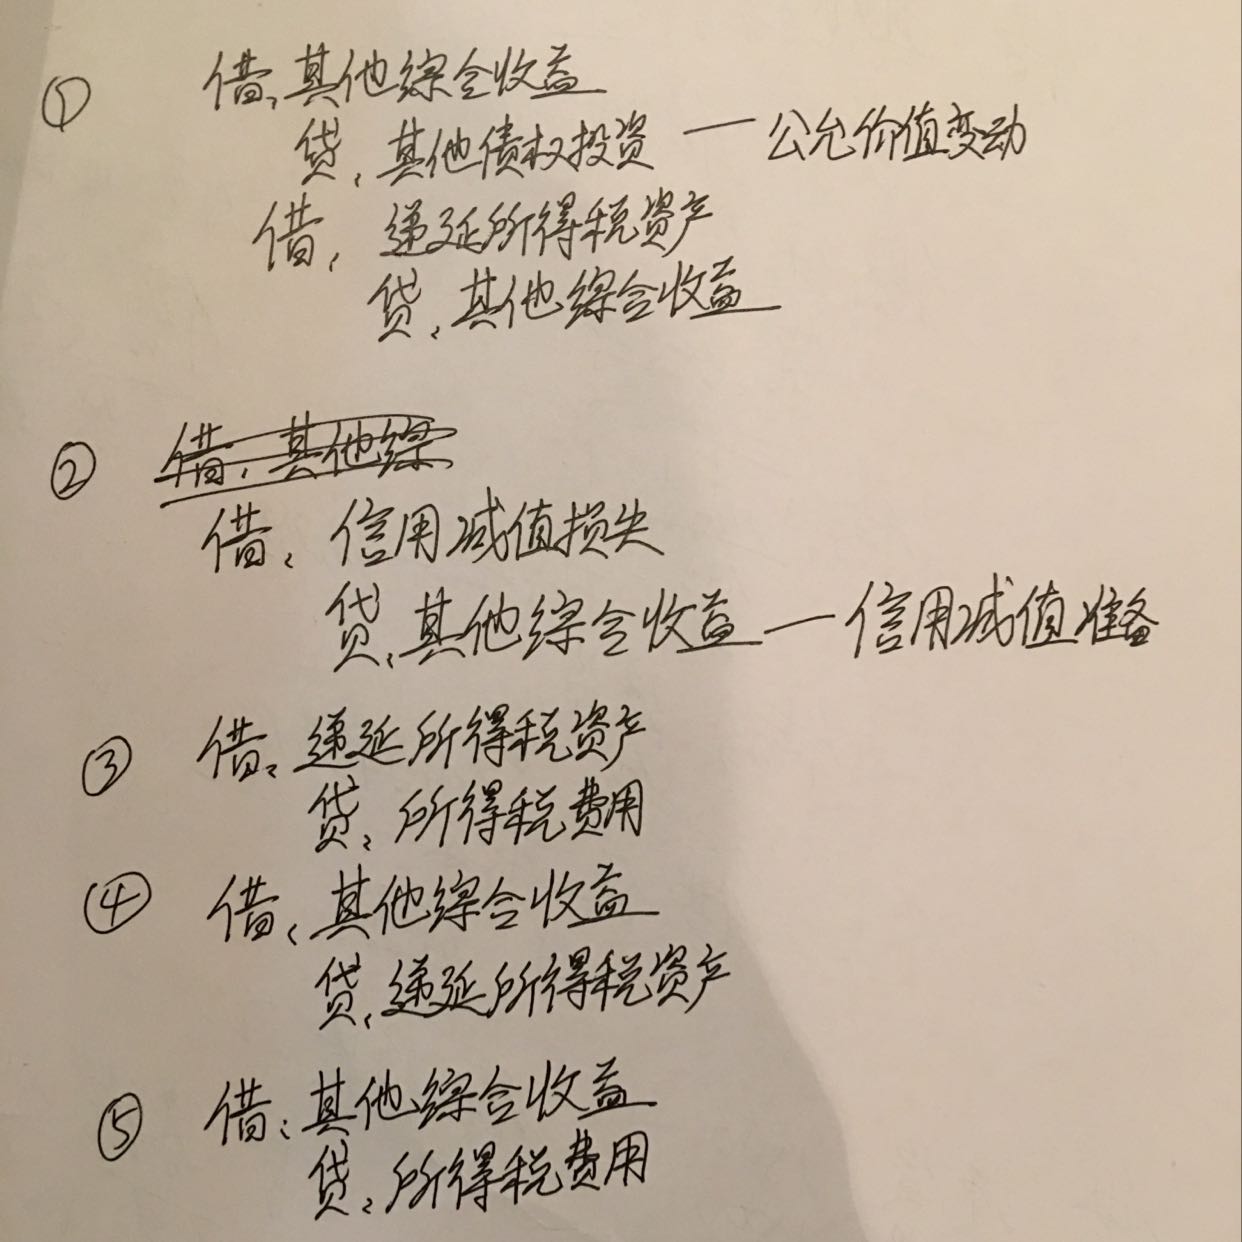 ① 借:其他综合收益
贷:其他债权投资 — 公允价值变动
借:递延所得税资产
贷:其他综合收益
② 借:其他综
借:信用减值损失
贷:其他综合收益 — 信用减值准备
③ 借:递延所得税资产
贷:所得税费用
④ 借:其他综合收益
贷:递延所得税资产
⑤ 借:其他综合收益
贷:所得税费用